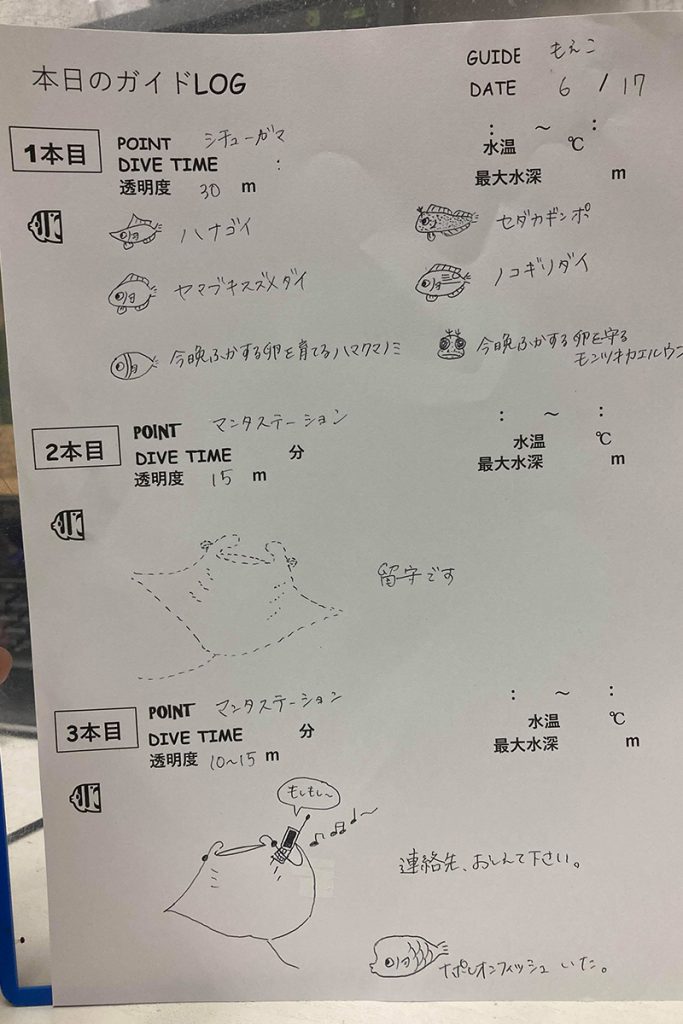 本日のガイドLOG
GUIDE もえこ
DATE 6 / 17
1本目
POINT シチューガマ
: ～ :
DIVE TIME :
水温 ℃
透明度 30 m
最大水深 m
ハナゴイ
セダカギンポ
ヤマブキスズメダイ
ノコギリダイ
今晩ふかする卵を育てるハマクマノミ
今日晩ふかする卵を守る
モンツキカエルウン
2本目
POINT マンタステーション
: ～ :
DIVE TIME 分
水温 ℃
透明度 15 m
最大水深 m
留守です
3本目
POINT マンタステーション
: ～ :
DIVE TIME 分
水温 ℃
透明度 10～15 m
最大水深 m
もしもし～
連絡先、おしえて下さい。
ナポレオンフィッシュ いた。